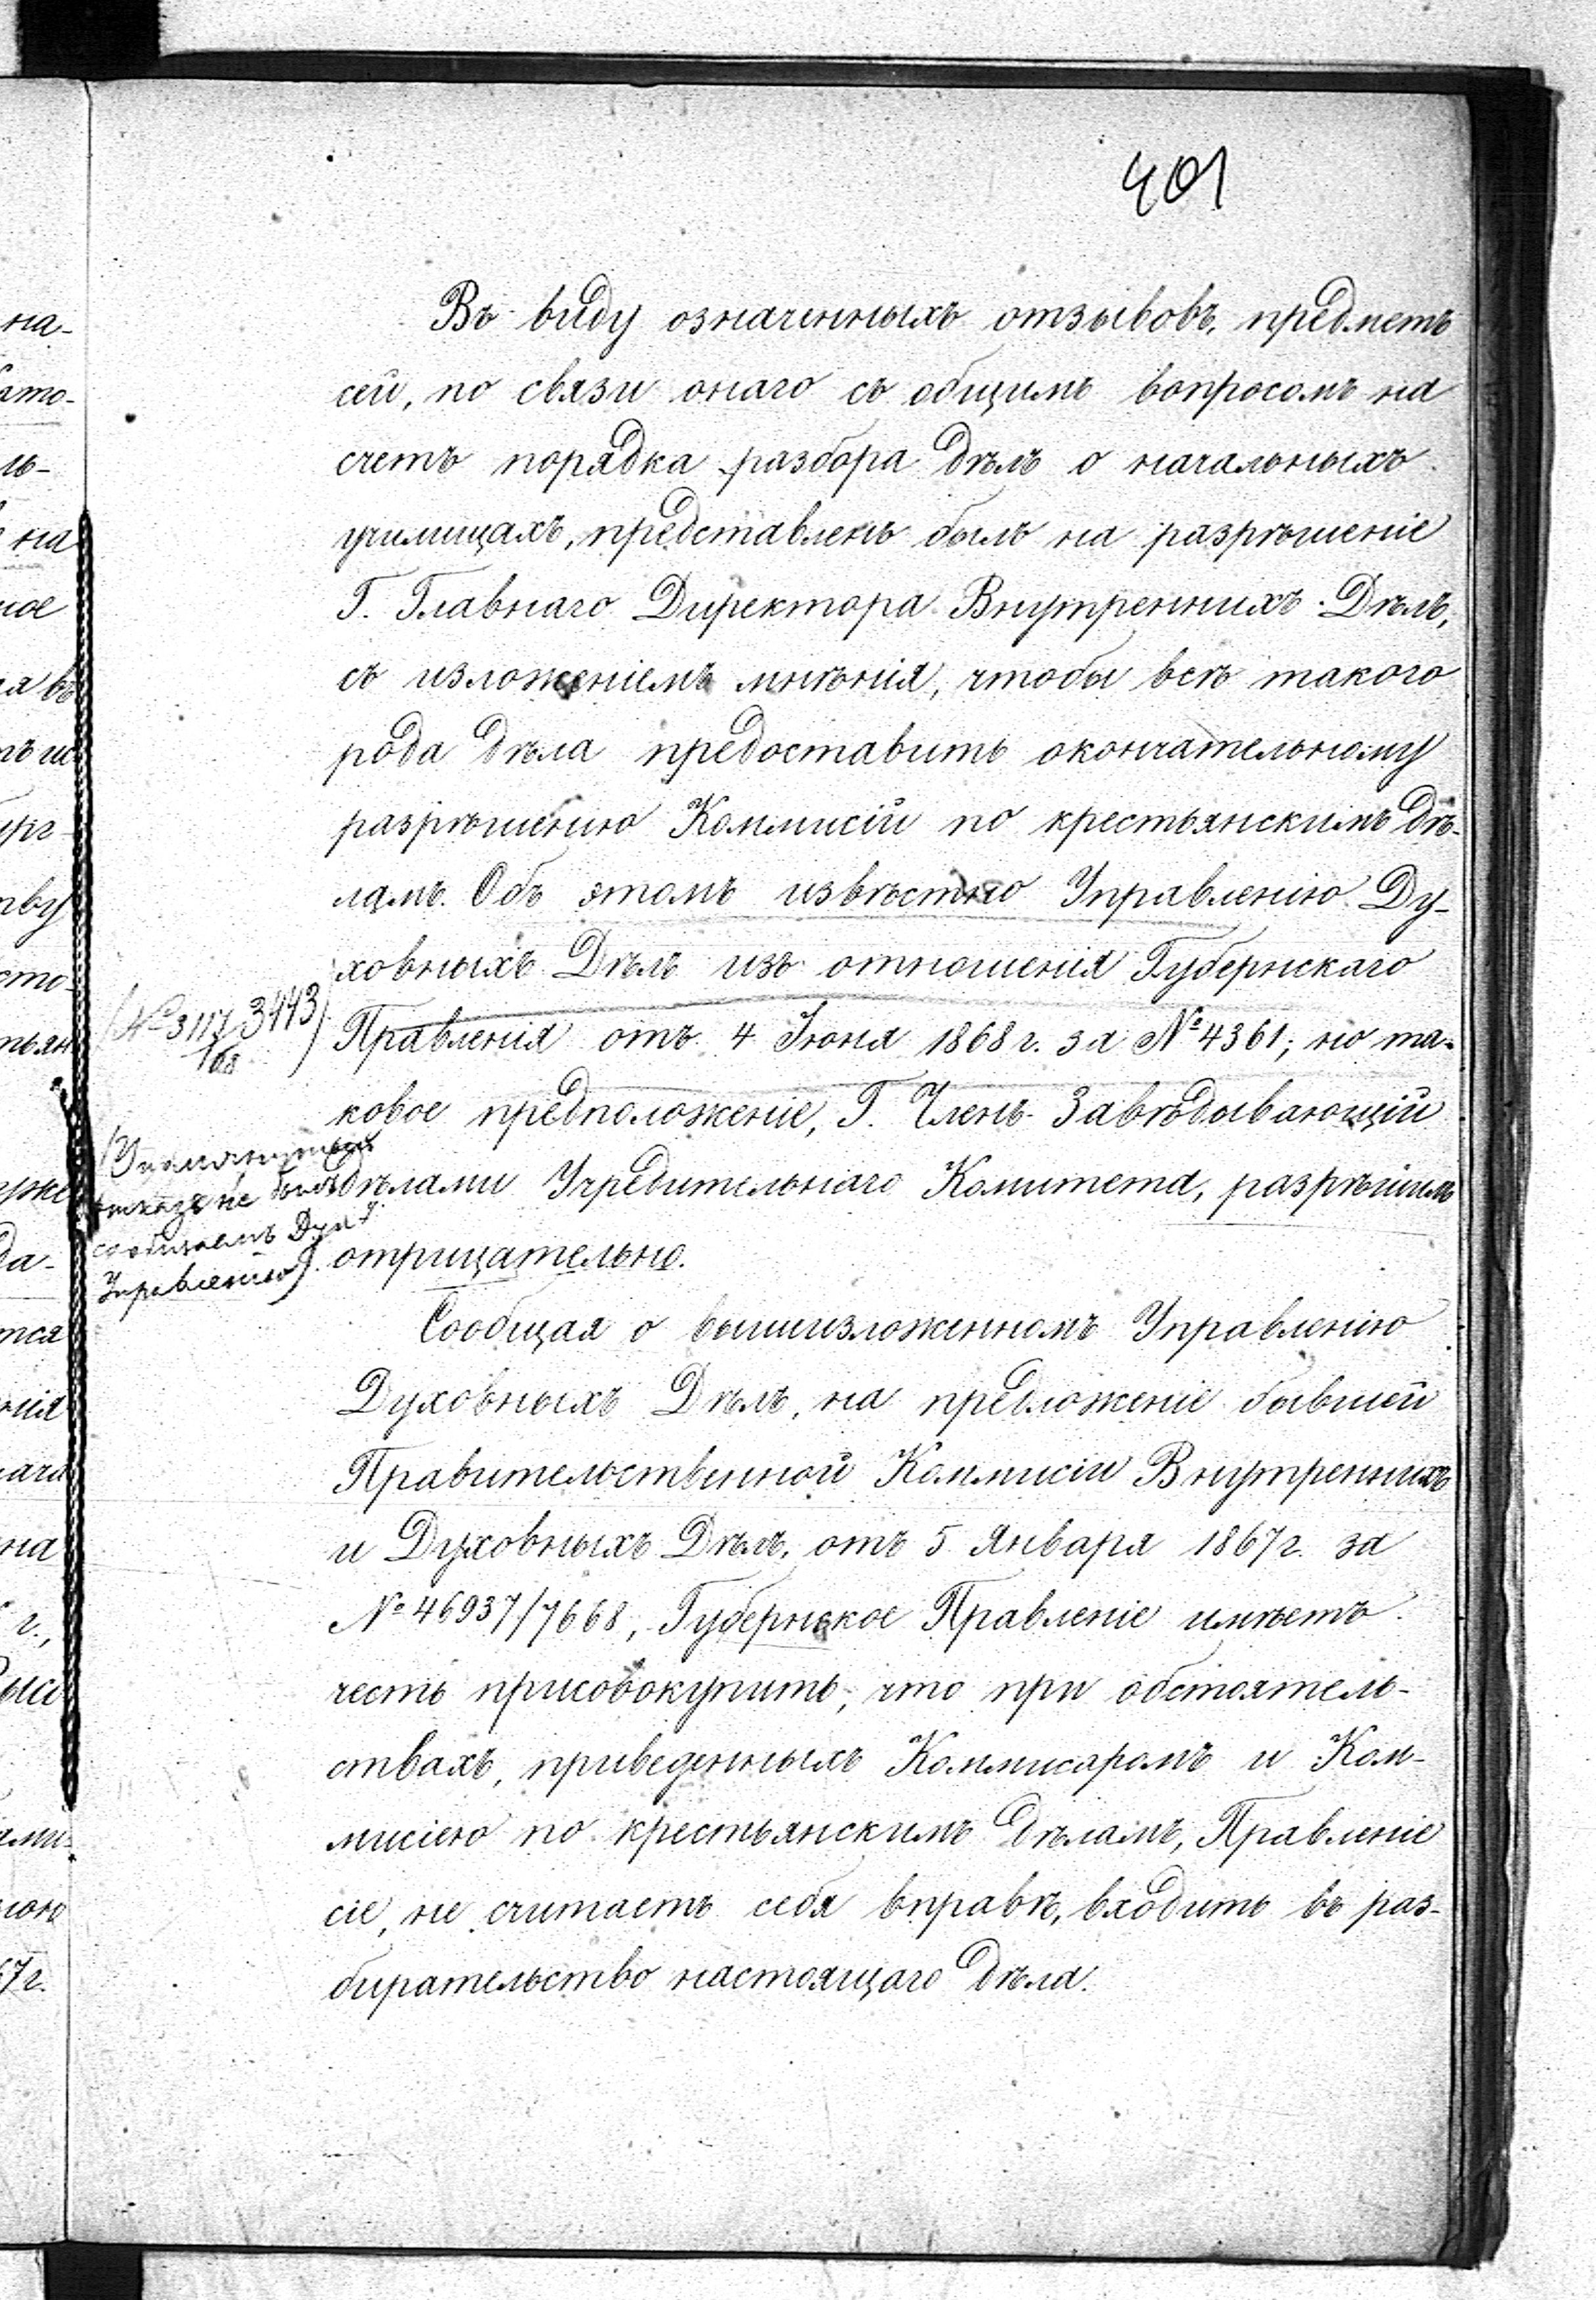 401
Въ виду означенныхъ отзывовъ, предметъ
сей, по связи онаго съ общимъ вопросомъ на
счетъ порядка разбора дѣлъ о начальныхъ
училищахъ, представленъ былъ на разрѣшеніе
Г. Главнаго Директора Внутреннихъ Дѣлъ,
съ изложеніемъ мнѣнія, чтобы всѣ такого
рода дѣла предоставить окончательному
разрѣшенію Коммисій по крестьянскимъ дѣ-
ламъ. Объ этомъ извѣстно Управленію Ду-
ховныхъ Дѣлъ изъ отношенія Губернскаго
(№ 3117 3443)
/68
Правленія отъ 4 Іюня 1868 г. за № 4361; но та-
ковое предположеніе, Г. Членъ Завѣдывающій
дѣлами Учредительнаго Комитета, разрѣшилъ
отрицательно.
(Упомянутый
отказъ не былъ
сообщаемъ Дух.
Управленію).
Сообщая о вышеизложенномъ Управленію
Духовныхъ Дѣлъ, на предложеніе бывшей
Правительственной Коммисіи Внутреннихъ
и Духовныхъ Дѣлъ, отъ 5 Января 1867 г. за
№ 46937/7668, Губернское Правленіе имѣетъ
честь присовокупить, что при обстоятель-
ствахъ, приведенныхъ Коммисаромъ и Ком-
мисіею по крестьянскимъ дѣламъ, Правленіе
сіе, не считаетъ себя вправѣ, входить въ раз-
бирательство настоящаго дѣла.